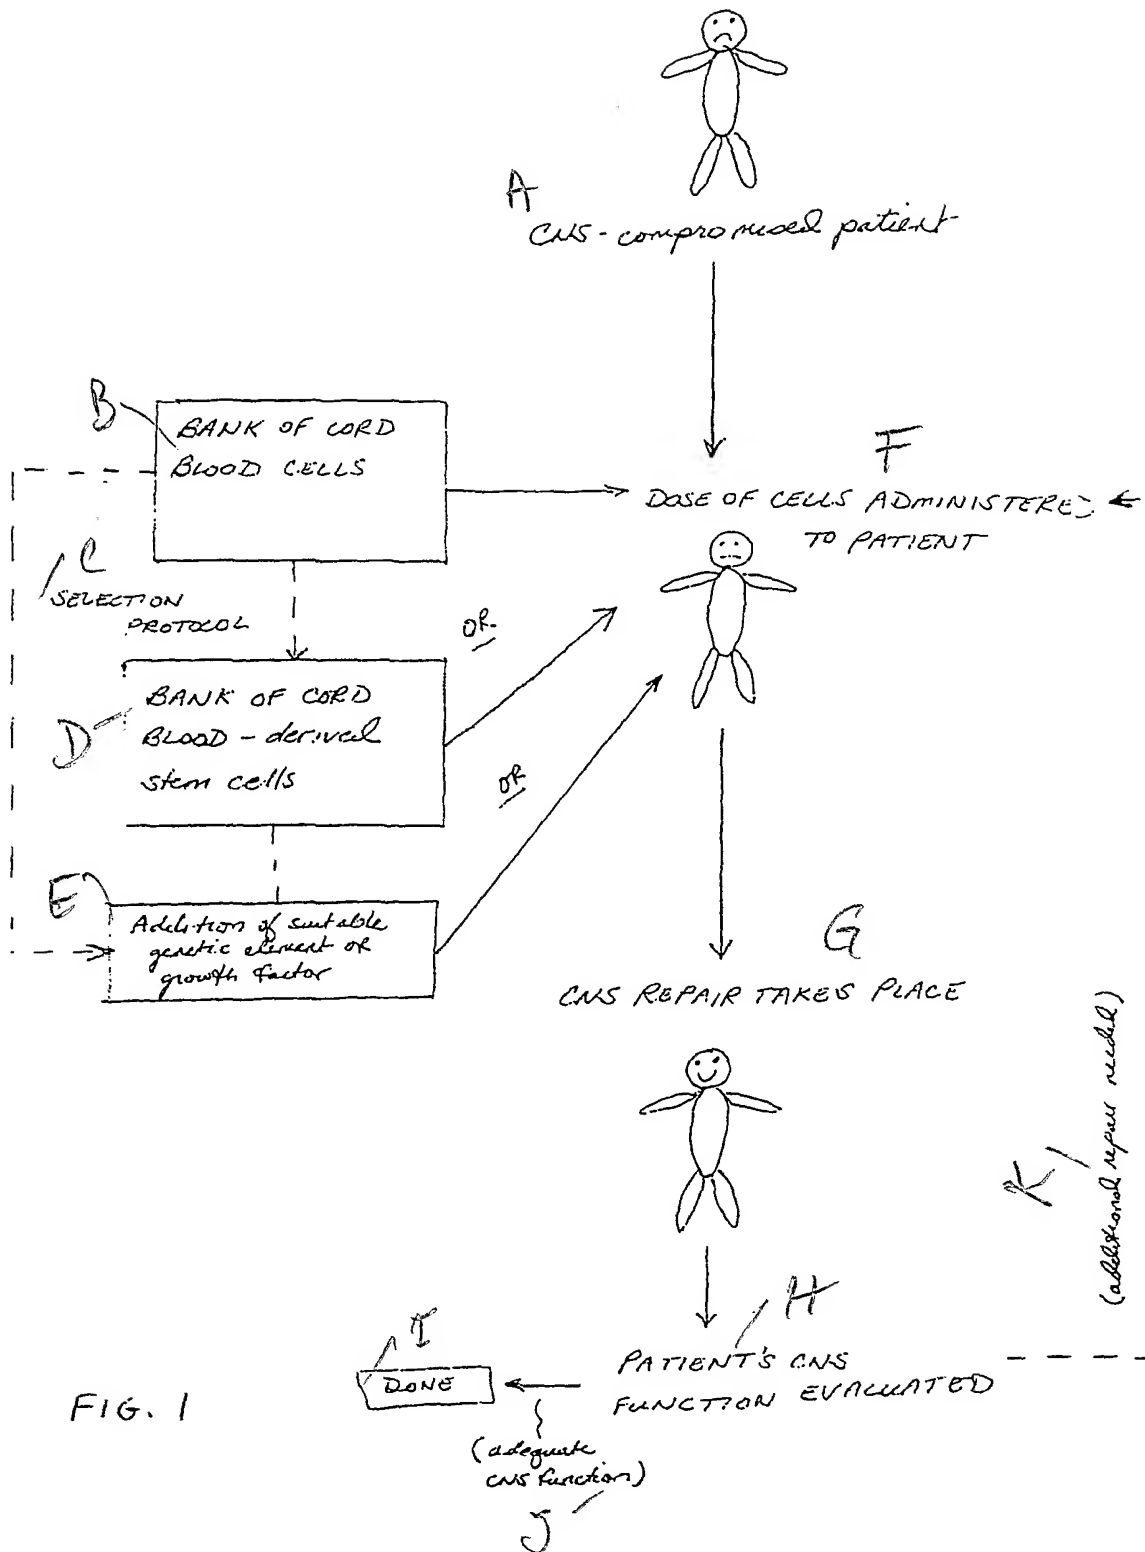 A
CNS-compromised patient
B
BANK OF CORD
BLOOD CELLS
F
DOSE OF CELLS ADMINISTERED
TO PATIENT
C
SELECTION
PROTOCOL
OR
D
BANK OF CORD
BLOOD-derived
stem cells
OR
E
Addition of suitable
genetic element or
growth factor
G
CNS REPAIR TAKES PLACE
K
(additional repair needed)
H
I
DONE
PATIENT'S CNS
FUNCTION EVALUATED
FIG. 1
(adequate
CNS function)
J